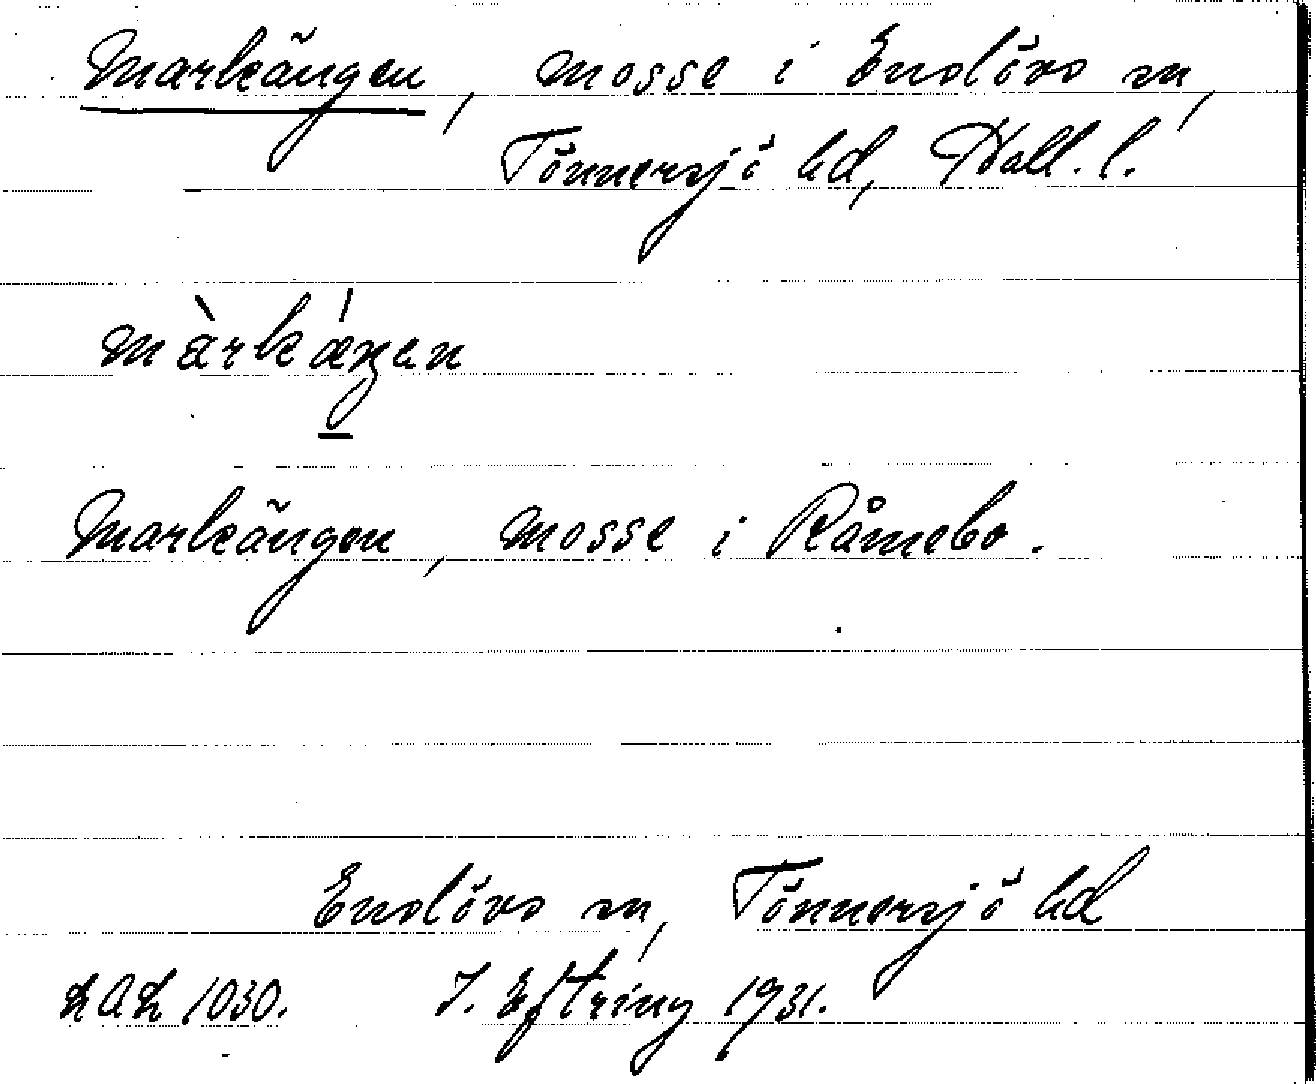 Markängen, mosse i Enslövs sn,
Tönnersjö hd, Hall. l.
Markängen, mosse i Råmebo.
Enslövs sn, Tönnersjö hd
LAL 1030. J. Eftring 1931.